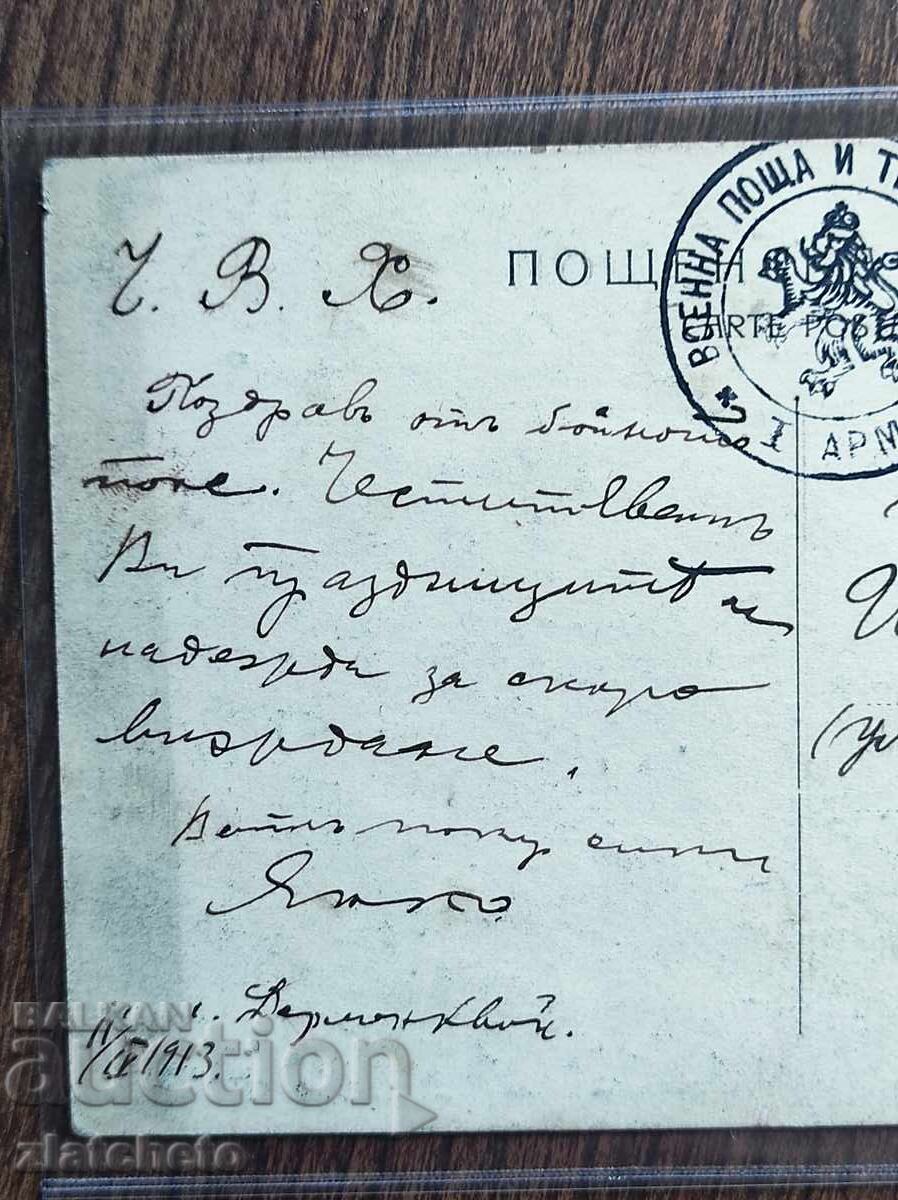 Ч. В. Х.
ПОЩЕН
CARTE POS
* ВОЕННА ПОЩА И Т
I АРМ
Поздравъ отъ бойното
поле. Честитявамъ
Ви празднициятѣ и
надежда за скоро
виждане.
Вашъ
Янко
с. Дермонквой.
1913.
(ул
BALKAN
auction
zlatcheto